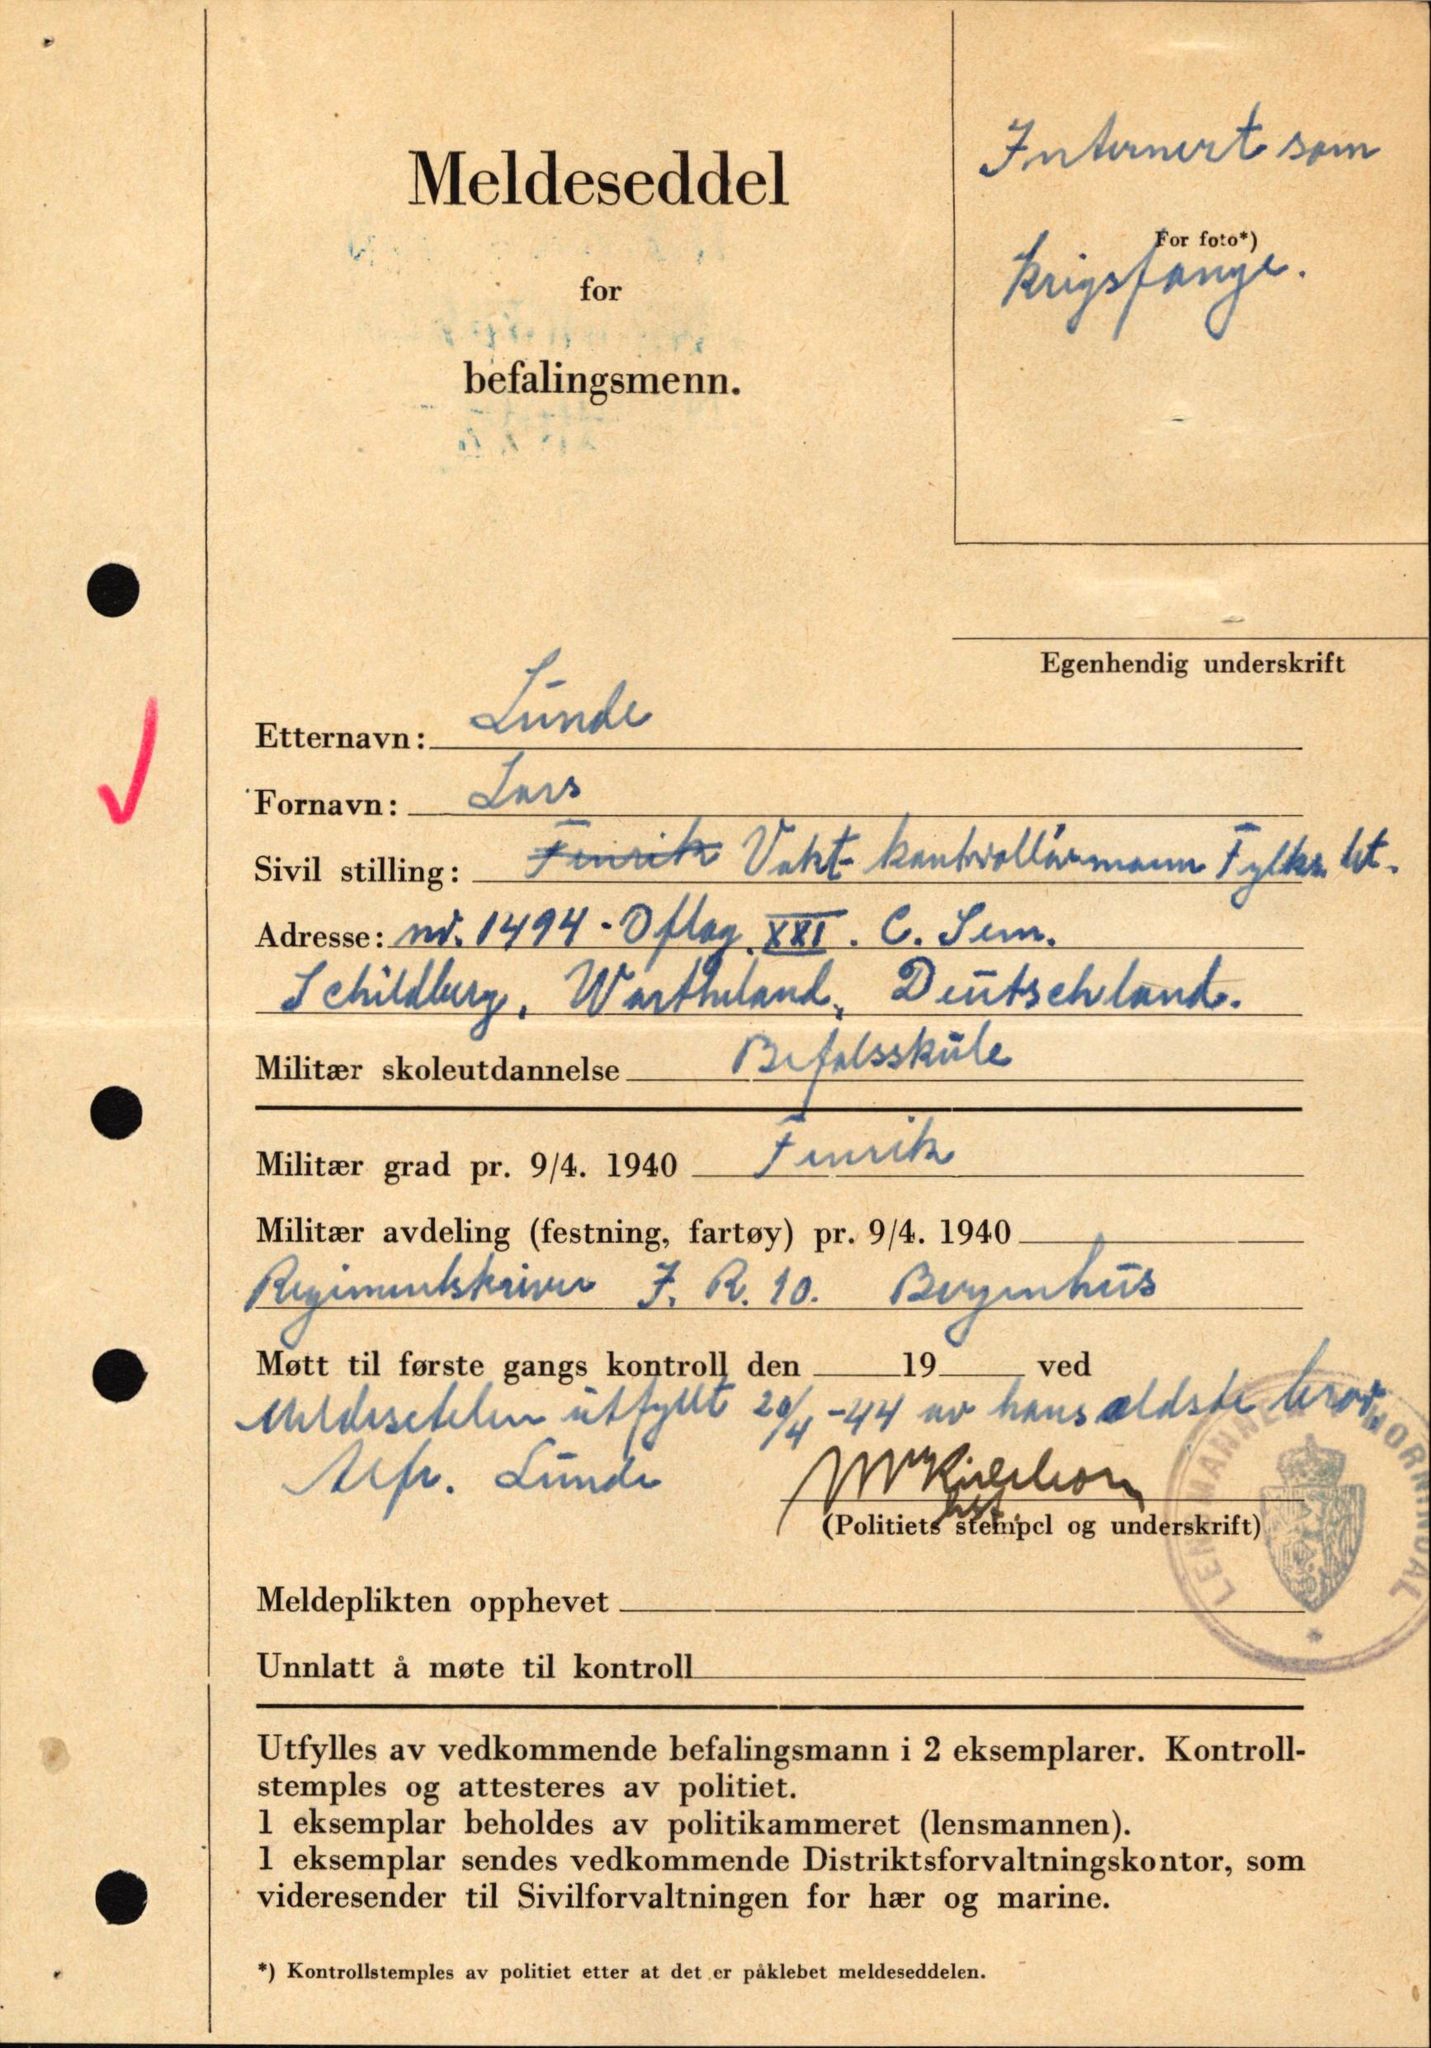 Meldeseddel
for
befalingsmenn.
Internert som
For foto*)
krigsfange.
Egenhendig underskrift
Etternavn: Lunde
Fornavn: Lars
Sivil stilling: Fenrik Vakt- kontrollørmann Fylkes
Adresse: nr. 1494 - Oflag XXI. C. Sem.
Schildberg, Wartheland, Deutschland.
Militær skoleutdannelse Befalsskule
Militær grad pr. 9/4. 1940 Fenrik
Militær avdeling (festning, fartøy) pr. 9/4. 1940
Regimentskriver I. R. 10. Bergenhus
Møtt til første gangs kontroll den 19 ved
Meldesetelen utfyllt 20/4-44 av hans eldste bror,
Alfr. Lunde
lst.
(Politiets stempel og underskrift)
LENSMANNEN I HORNINDAL
Meldeplikten opphevet
Unnlatt å møte til kontroll
Utfylles av vedkommende befalingsmann i 2 eksemplarer. Kontroll-
stemples og attesteres av politiet.
1 eksemplar beholdes av politikammeret (lensmannen).
1 eksemplar sendes vedkommende Distriktsforvaltningskontor, som
videresender til Sivilforvaltningen for hær og marine.
*) Kontrollstemples av politiet etter at det er påklebet meldeseddelen.